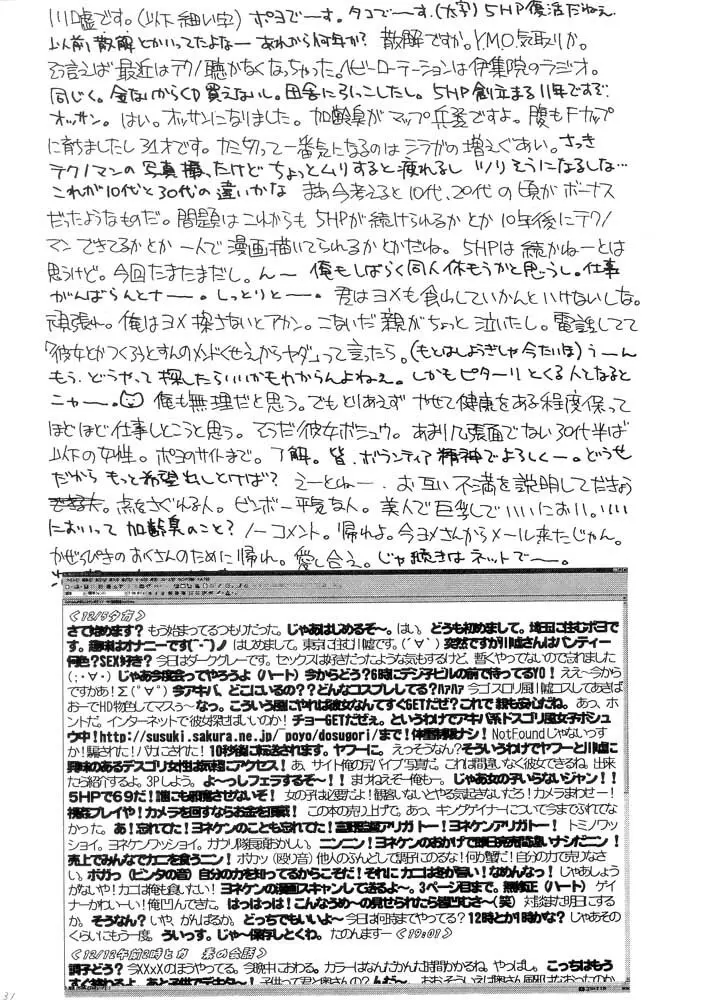 川嘘です。(以下細い字) ポヨでーす。タコでーす。(太字) 5HP復活だねえ
以前散解とかいってたよなー あれから何年か? 散解ですか。Y.M.O.気取りか。
そう言えば最近はテクノ聴かなくなっちゃった。ヘビーローテーションは伊集院のラジオ。
同じく。金ないからCD買えないし。田舎に引っこしたし。5HP創立まる11年ですぞ
オッサン。はい。オッサンになりました。加齢臭がマップ兵器ですよ。腹もFカップ
に育ちましたし31才です。 一番気になるのはシラガの増えぐあい。さっき
テクノマンの写真撮ったけどちょっとムリすると疲れるし ツリそうになるしな…
これが10代と30代の違いかな まあ今考えると10代、20代の頃がボーナス
だったようなものだ。問題はこれからも5HPが続けられるかとか10年後にテクノ
マンできてるかとか一人で漫画描いてられるかとかだね。5HPは続かねーとは
思うけど。今回たまたまだし。んー 俺もしばらく同人休もうかと思うし。仕事
がんばらんとナー。しっとりとー。君はヨメも食わしていかんといけないしな。
頑張れ。俺はヨメ探さないとアカン。こないだ親がちょっと泣いたし。電話してて
「彼女とかつくろうとすんのメンドくせえからヤダ」って言ったら。(もとはしょうぎしゃ今たいほ) うーん
もう、どうやって探したらいいかもわからんよねえ。しかもピターリとくる人となると
ニャー。俺も無理だと思う。でもとりあえずやせて健康をある程度保って
ほどほど仕事しとこうと思う。そうだ彼女ボシュウ。あまり几張面でない30代半ば
以下の女性。ポヨのサイトまで。了解。皆、ボランティア精神でよろしくー。どうせ
だからもっと希望出しとけば? えーとねー、お互い不満を説明してだきょう
点をさぐれる人。ビンボー平気な人。美人で巨乳でいいにおい。いい
においって加齢臭のこと? ノーコメント。帰れよ。今ヨメさんからメール来たじゃん。
かぜっぴきのおくさんのために帰れ。愛し合え。じゃ続きはネットでー。
<12/5夕方>
さて始めます? もう始まってるつもりだった。じゃあはじめるぞ~。はい。どうも初めまして。埼玉に住むポヨで
す。趣味はオナニーです(^-^)ノ はじめまして。東京に住む川嘘です。(´∀`) 突然ですが川嘘さんはパンティー
何色?SEX好き? 今日はダークグレーです。セックスは好きだったような気もするけど、暫くやってないので忘れました
(;・∀・) じゃあ今度会ってやろうよ (ハート) 今からどう?6時にデジ子ビルの前で待ってるYO! ええ~今から
ですかあ!Σ(゚∀゚) 今アキバ、どこにいるの??どんなコスプレしてる?ﾊｧﾊｧ 今ゴスロリ風川嘘コスしてあきば
おーでHD物色してマスぅ~なっ。こういう風にやれば彼女なんてすぐGETだぜ?これで親も安心だね。あっ、ホ
ントだ。インターネットで彼女探せばいいのか! チョーGETだぜぇ。というわけでアキバ系ドスゴリ風女子ボシュ
ウ中!http://susuki.sakura.ne.jp/~poyo/dosugori/まで!体重制限ナシ! NotFoundじゃないっす
か!騙された!バカにされた! 10秒後に転送されます。ヤフーに。えっそうなん?そういうわけでヤフーと川嘘に
興味のあるデスゴリ女性は気軽にアクセス! あ、サイト俺の尻バイブ写真だ。これは間違いなく彼女できるね。出来
たら紹介するよ。3Pしよう。よ~っしフェラするぞ~!! まけねえぞ~俺も~。じゃあ女の子いらないジャン!!
5HPで69だ!誰にも邪魔させないぞ! 女の子は必要だよ!観客いないとやる気起きないだろ!カメラまわせー!
視姦プレイや!カメラを回すならお金を頂戴! この本の売り上げで。あっ、キングゲイナーについて今までふれてな
かった。あ!忘れてた!ヨネケンのことも忘れてた!富野監督アリガトー!ヨネケンアリガトー! トミノワッ
ショイ。ヨネケンワッショイ。カナリ隊長恥かしい。ニンニン!ヨネケンのおかげで即日完売間違いナシだニン!
売上でみんなでカニを食うニン! ボカッ (殴り音) 他人のふんどしで調子にのるな!何が蟹だ!自分の力で売りなさ
い。ボガっ (ピンタの音) 自分の力を知ってるからこそだ!それにカニは冬が旨い!なめんなっ! じゃあしょう
がないや!カニは俺も食いたい! ヨネケンの漫画スキャンして送るよ~。3ページ目まで。無修正 (ハート) ゲイ
ナーかわいーい!俺凹んできた。はっはっは!こんなうめ~の見せられたら皆凹むさ~(笑) 対談また明日にする
か。そうなん? いや、がんばるか。どっちでもいいよ~ 今日は何時までやってる? 12時とか1時かな? じゃあその
くらいにもう一度。ういっす。じゃ~保存しとくわ。たのんますー <19:01>
<12/12午前2時ヒカ 素の会話>
調子どう? 今XXXのほうやってる。今晩中におわる。カラーはなんだかんだ時間かかるね。やっぱし。こっちはもう
31